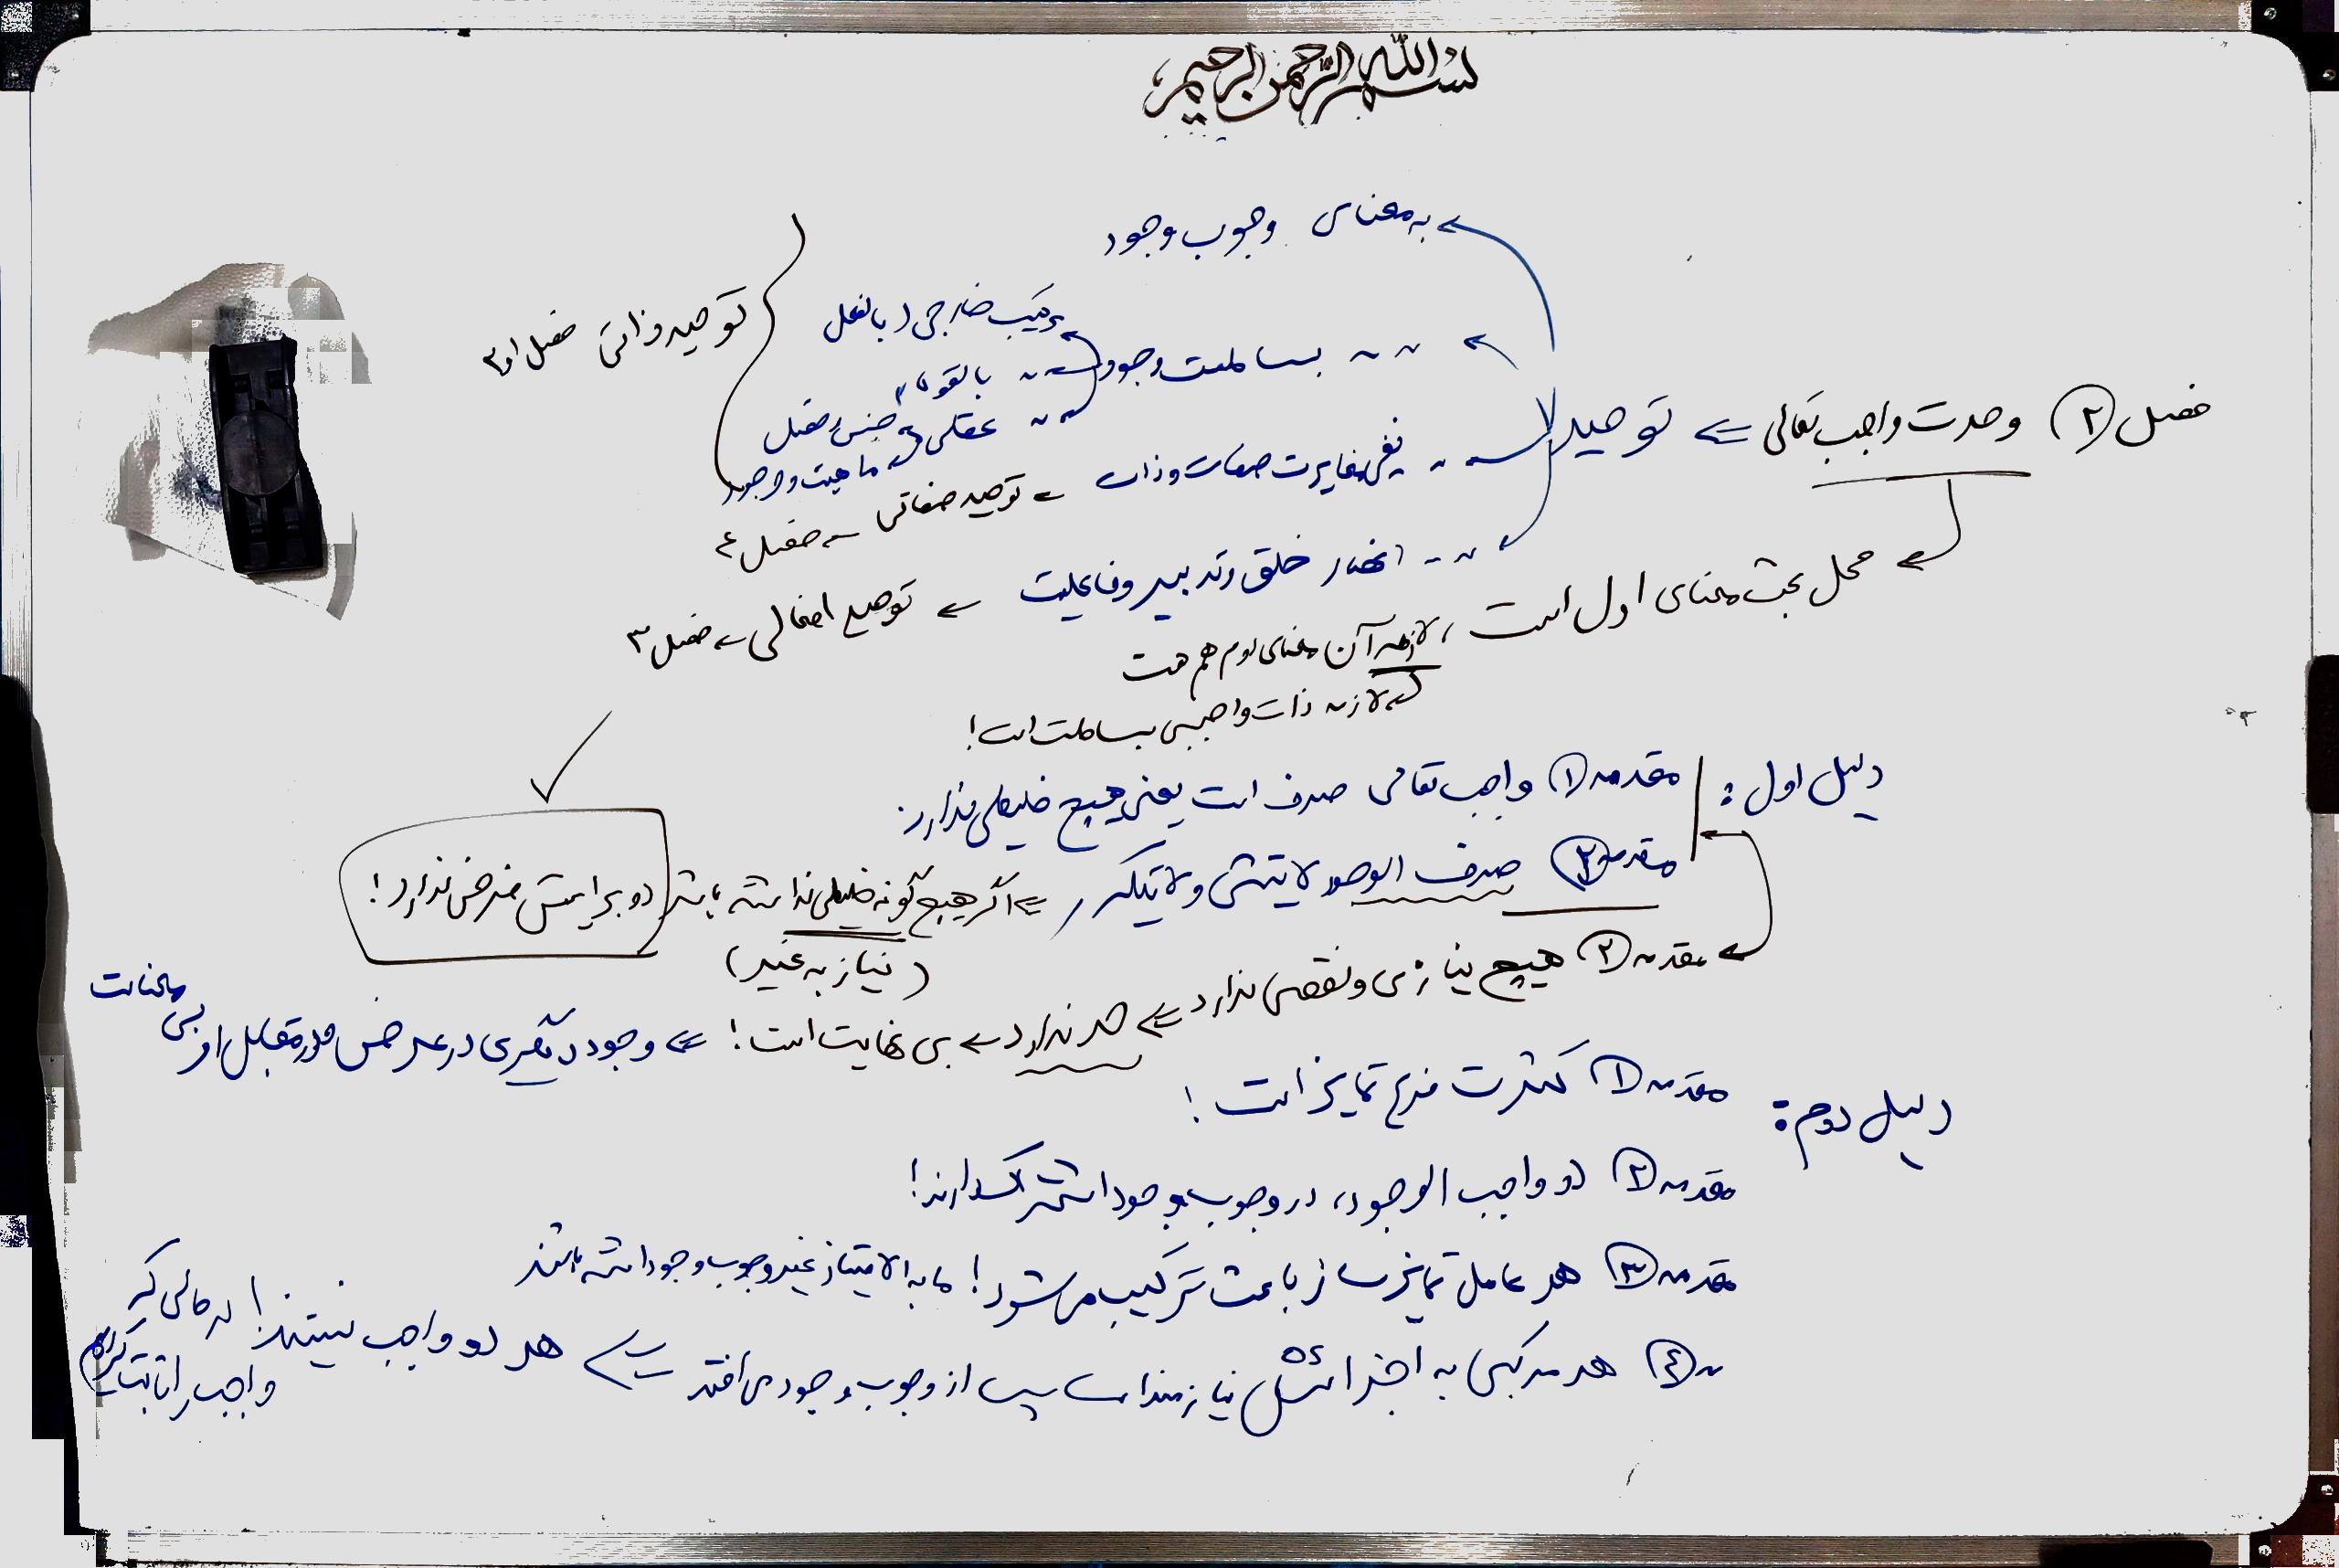 بسم الله الرحمن الرحیم
فصل ۲ وحدت واجب تعالی ⇐ توحید
← به معنای وجوب وجود
← ~ ~ بساطت وجود
← ترکیب خارجی / بالفعل
← ~ ~ بالقوه
← ~ عقلی
جنس و فصل
ماهیت و وجود
توحید ذاتی فصل ۱و۲
← ~ نفی مغایرت صفات و ذات ← توحید صفاتی ← فصل ۴
← ~ ~ انحصار خلق و تدبیر و فاعلیت ← توحید افعالی ← فصل ۳
← محل بحث معنای اول است، لازمه آن معنای دوم هم هست
لازمه ذات واجبی بساطت است!
دلیل اول: مقدمه ۱ واجب تعالی صرف است یعنی هیچ خلیطی ندارد.
مقدمه ۲ صرف الوجود لایتثنی و لایتکرر ⇐ اگر هیچ گونه خلیطی نداشته باشد دو برایش فرض ندارد!
(نیاز به غیر)
مقدمه ۲ هیچ نیازی و نقصی ندارد ⇐ حد ندارد ← بی نهایت است! ⇐ وجود دیگری در عرض و در مقابل او بی معناست
دلیل دوم: مقدمه ۱ کثرت فرع تمایز است!
مقدمه ۲ دو واجب الوجود، در وجوب وجود اشتراک دارند!
مقدمه ۳ هر عامل تمایز ساز باعث ترکیب می شود! ما به الامتیاز غیر وجوب وجود داشته باشند
~ ۴ هر مرکبی به اجزائش نیازمند است پس از وجوب وجود می افتد ⇐ هر دو واجب نیستند! در حالی که
واجب را ثابت کردیم